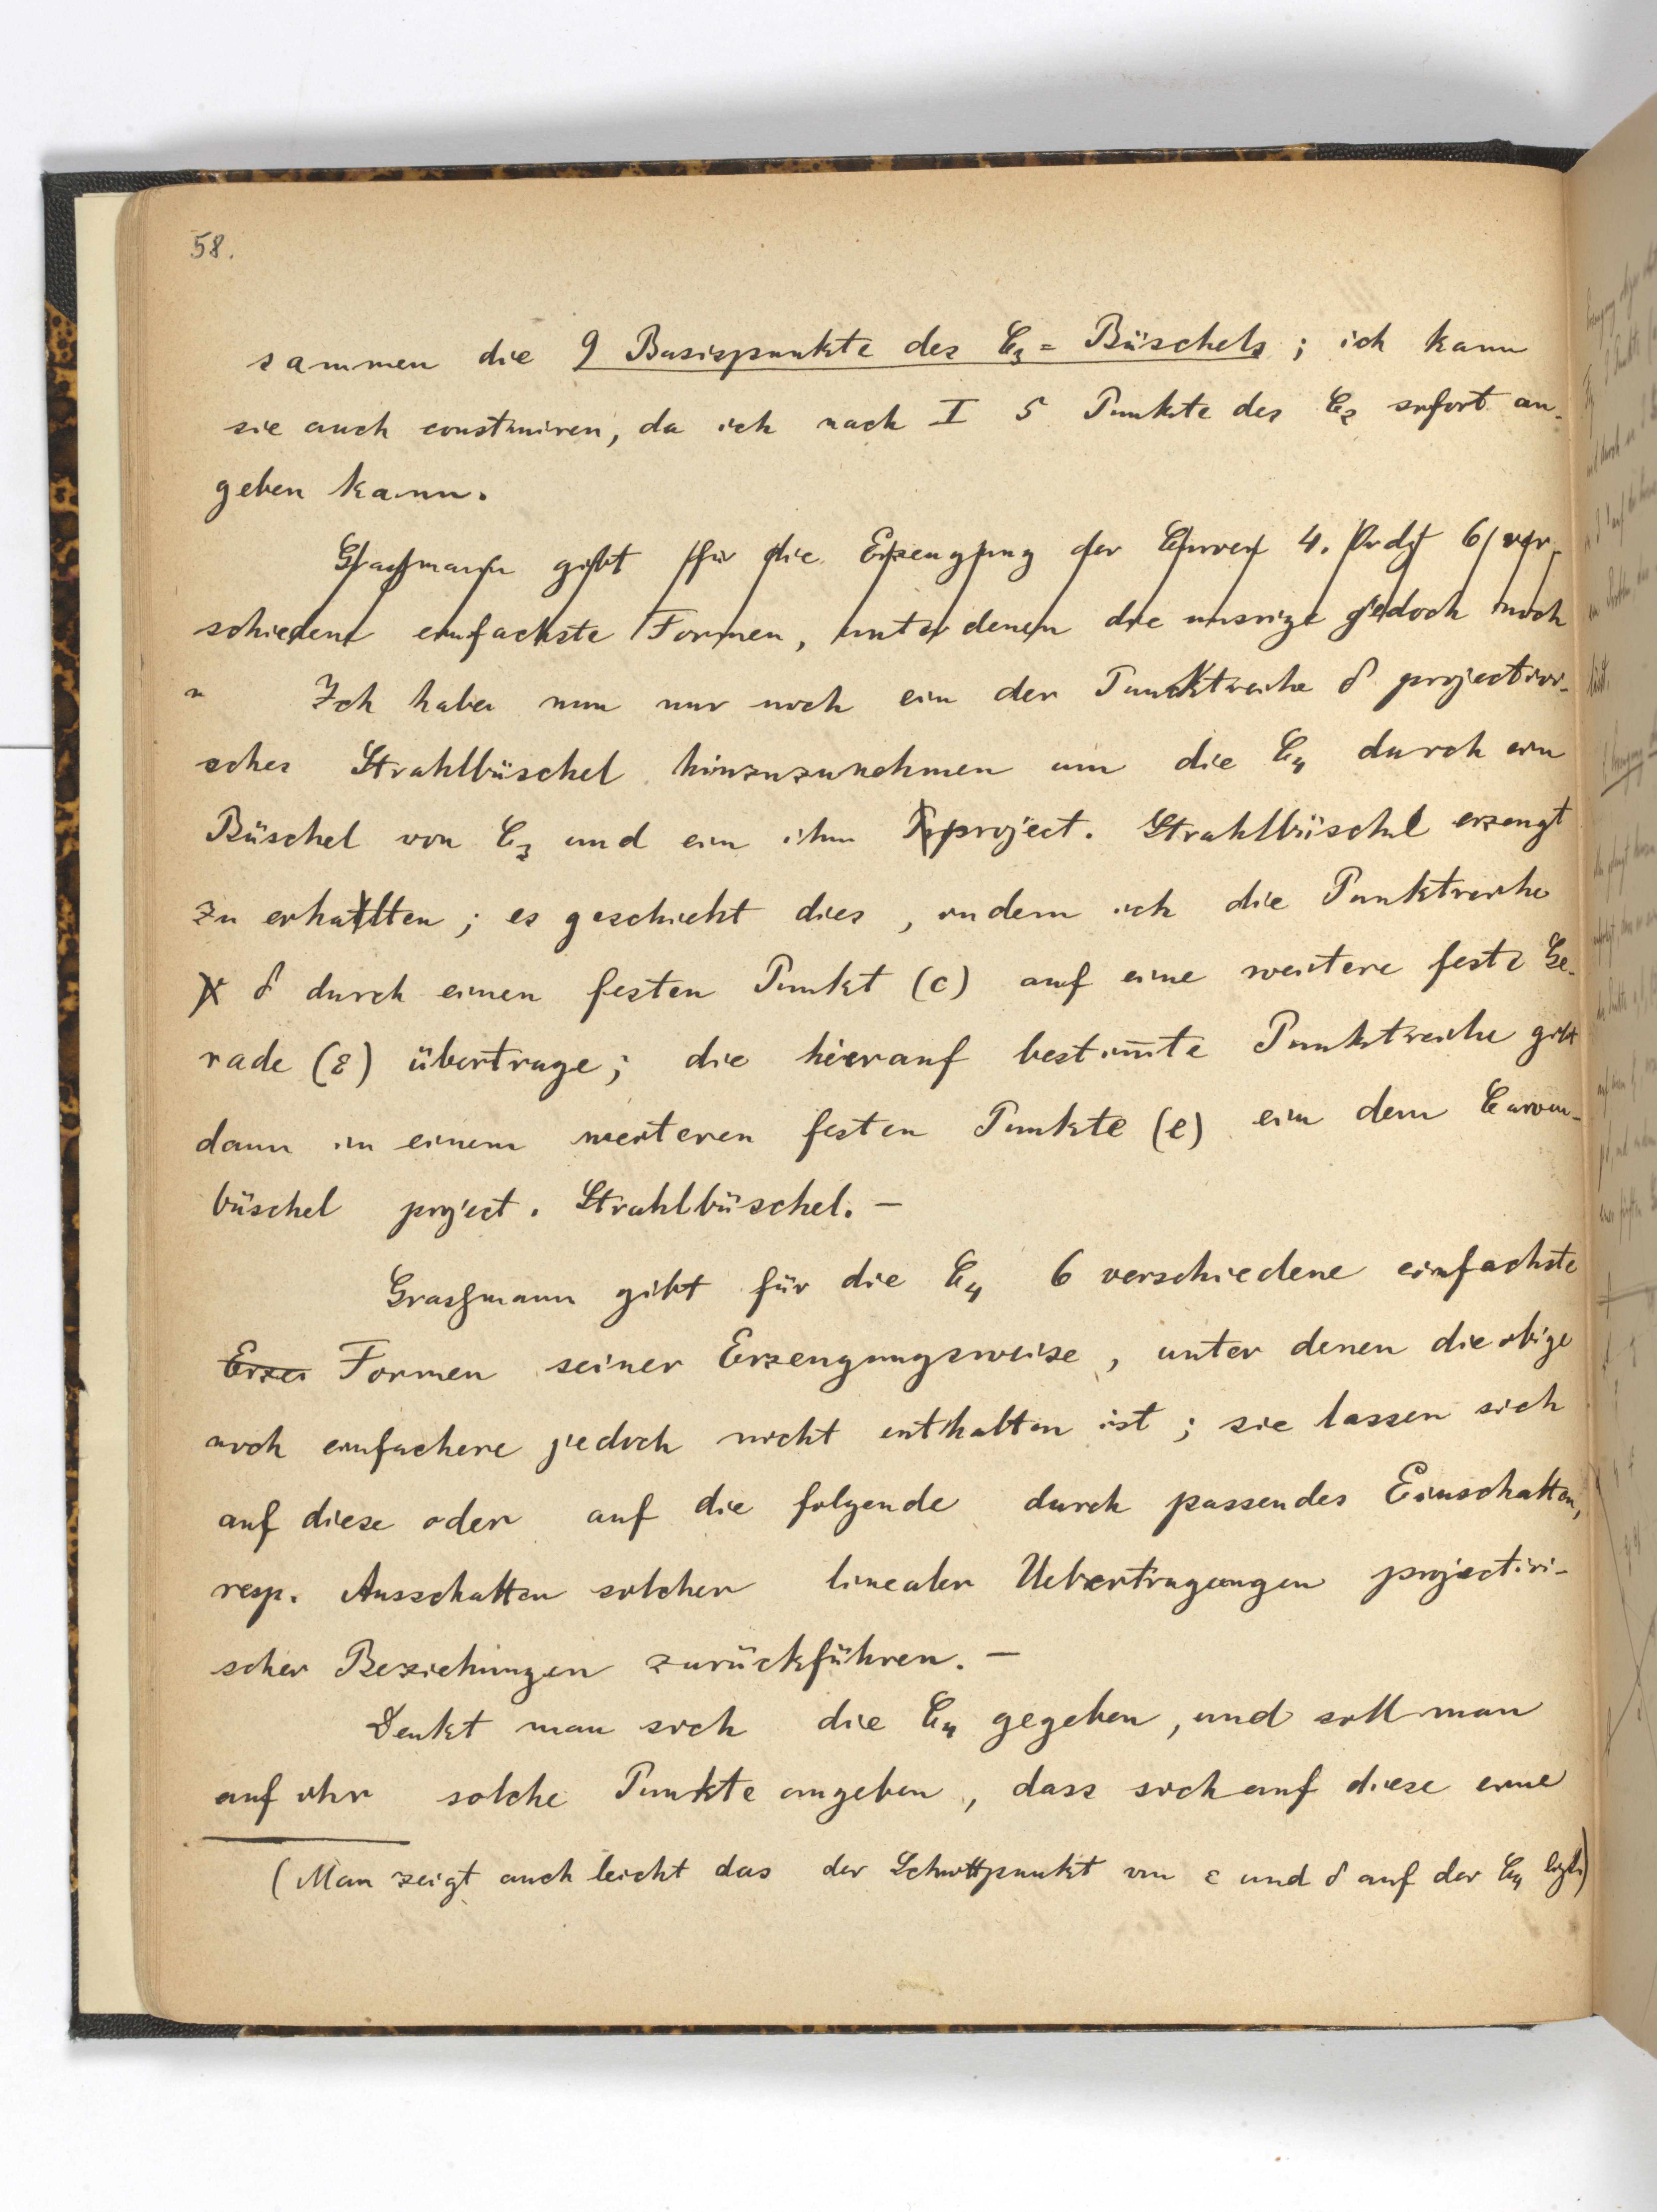 58.
sammen die 9 Basispunkte des C₃=Büschels; ich kann
sie auch construiren, da ich nach I 5 Punkte des C₃ sofort an-
geben kann.
Grassmann gibt für die Erzeugung der Curven 4. Ordg 6 ver-
schiedene einfachste Formen, unter denen die unsrige jedoch noch
Ich habe nun nur noch ein der Punktreihe δ projectivi-
sches Strahlbüschel hinzuzunehmen um die C₄ durch ein
Büschel von C₃ und ein ihm project. Strahlbüschel erzeugt
zu erhalten; es geschieht dies, indem ich die Punktreihe
δ durch einen festen Punkt (c) auf eine weitere feste Ge-
rade (ε) übertrage; die hierauf bestim̅te Punktreihe gibt
dann in einem weiteren festen Punkte (e) ein dem Curven-
büschel project. Strahlbüschel. –
Grassmann gibt für die C₄ 6 verschiedene einfachste
Erze Formen seiner Erzeugungsweise, unter denen die obige
noch einfachere jedoch nicht enthalten ist; sie lassen sich
auf diese oder auf die folgende durch passendes Einschalten,
resp. Ausschalten solcher linealer Uebertragungen projectivi-
scher Beziehungen zurückführen. –
Denkt man sich die C₄ gegeben, und soll man
auf ihr solche Punkte angeben, dass sich auf diese eine
(Man zeigt auch leicht das der Schnittpunkt von ε und δ auf der C₄ liegt)